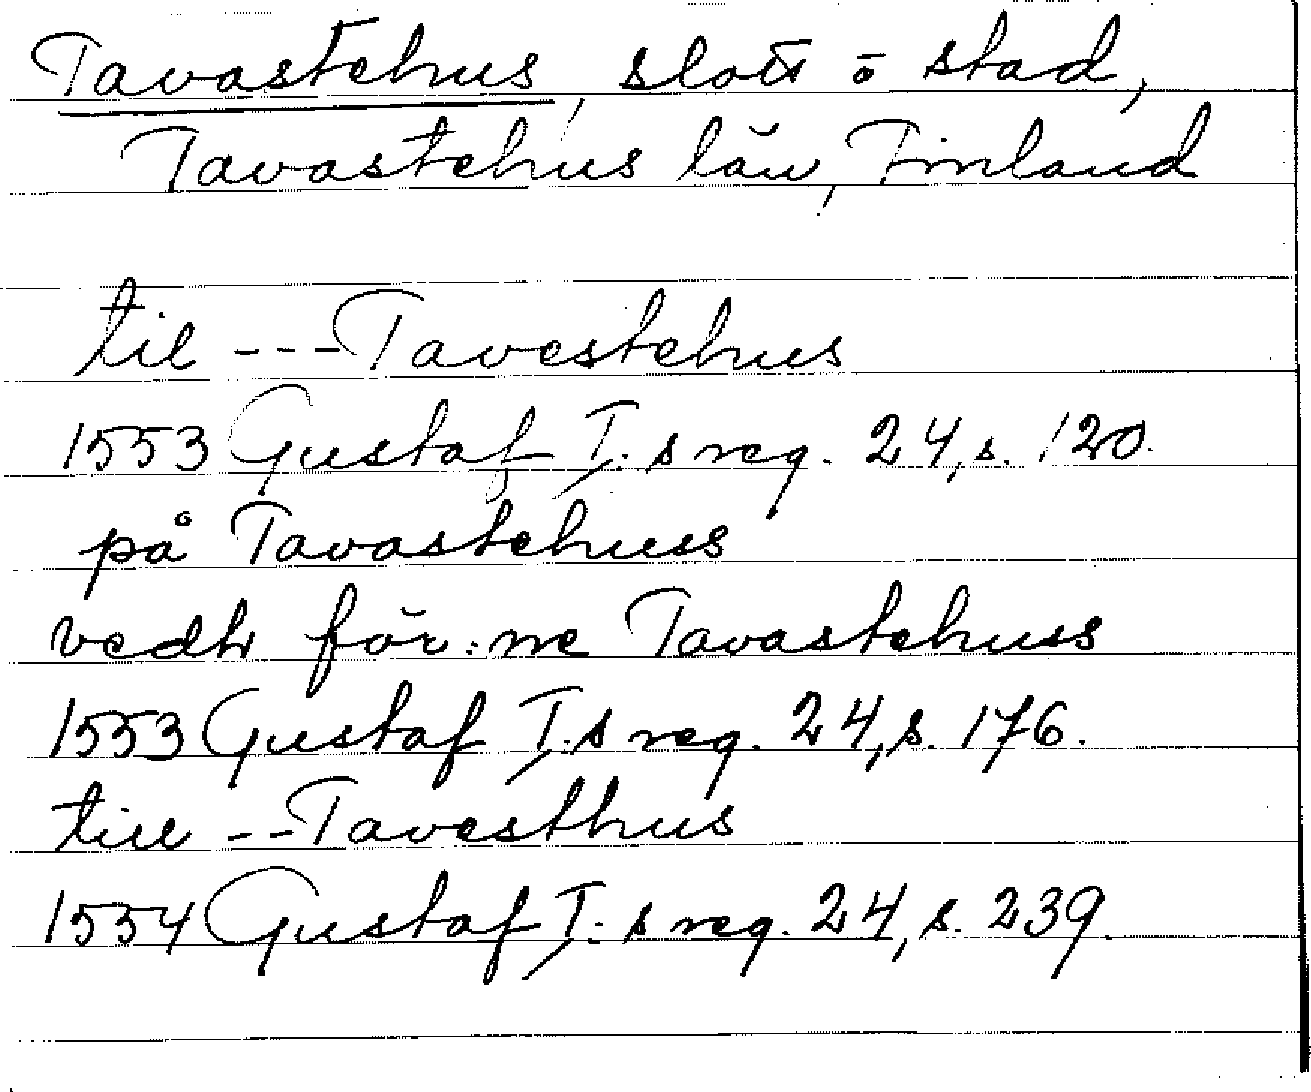 Tavastehus, slott o stad,
Tavastehus län, Finland
til --- Tavestehus
1553 Gustaf I:s reg. 24, s. 120.
på Tavastehuss
vedh för:ne Tavastehuss
1553 Gustaf I:s reg. 24, s. 176.
till -- Tavesthus
1554 Gustaf I:s reg. 24, s. 239.